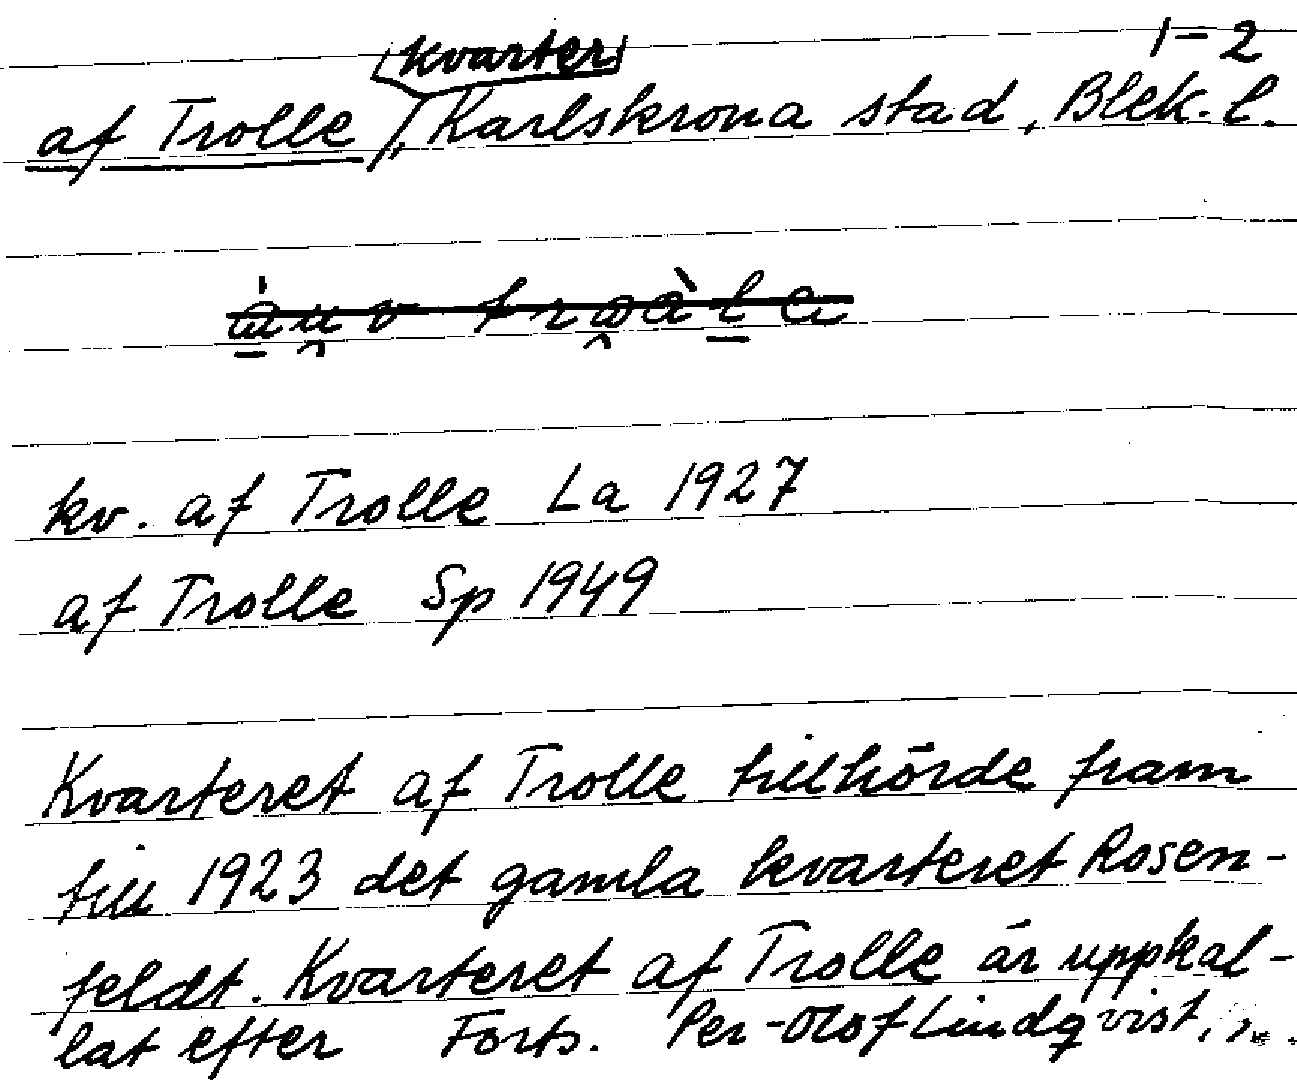 kvarter 1-2
af Trolle, Karlskrona stad, Blek. l.
kv. af Trolle La 1927
af Trolle Sp 1949
Kvarteret af Trolle tillhörde fram
till 1923 det gamla kvarteret Rosen-
feldt. Kvarteret af Trolle är uppkal-
lat efter Forts. Per-Olof Lindqvist,